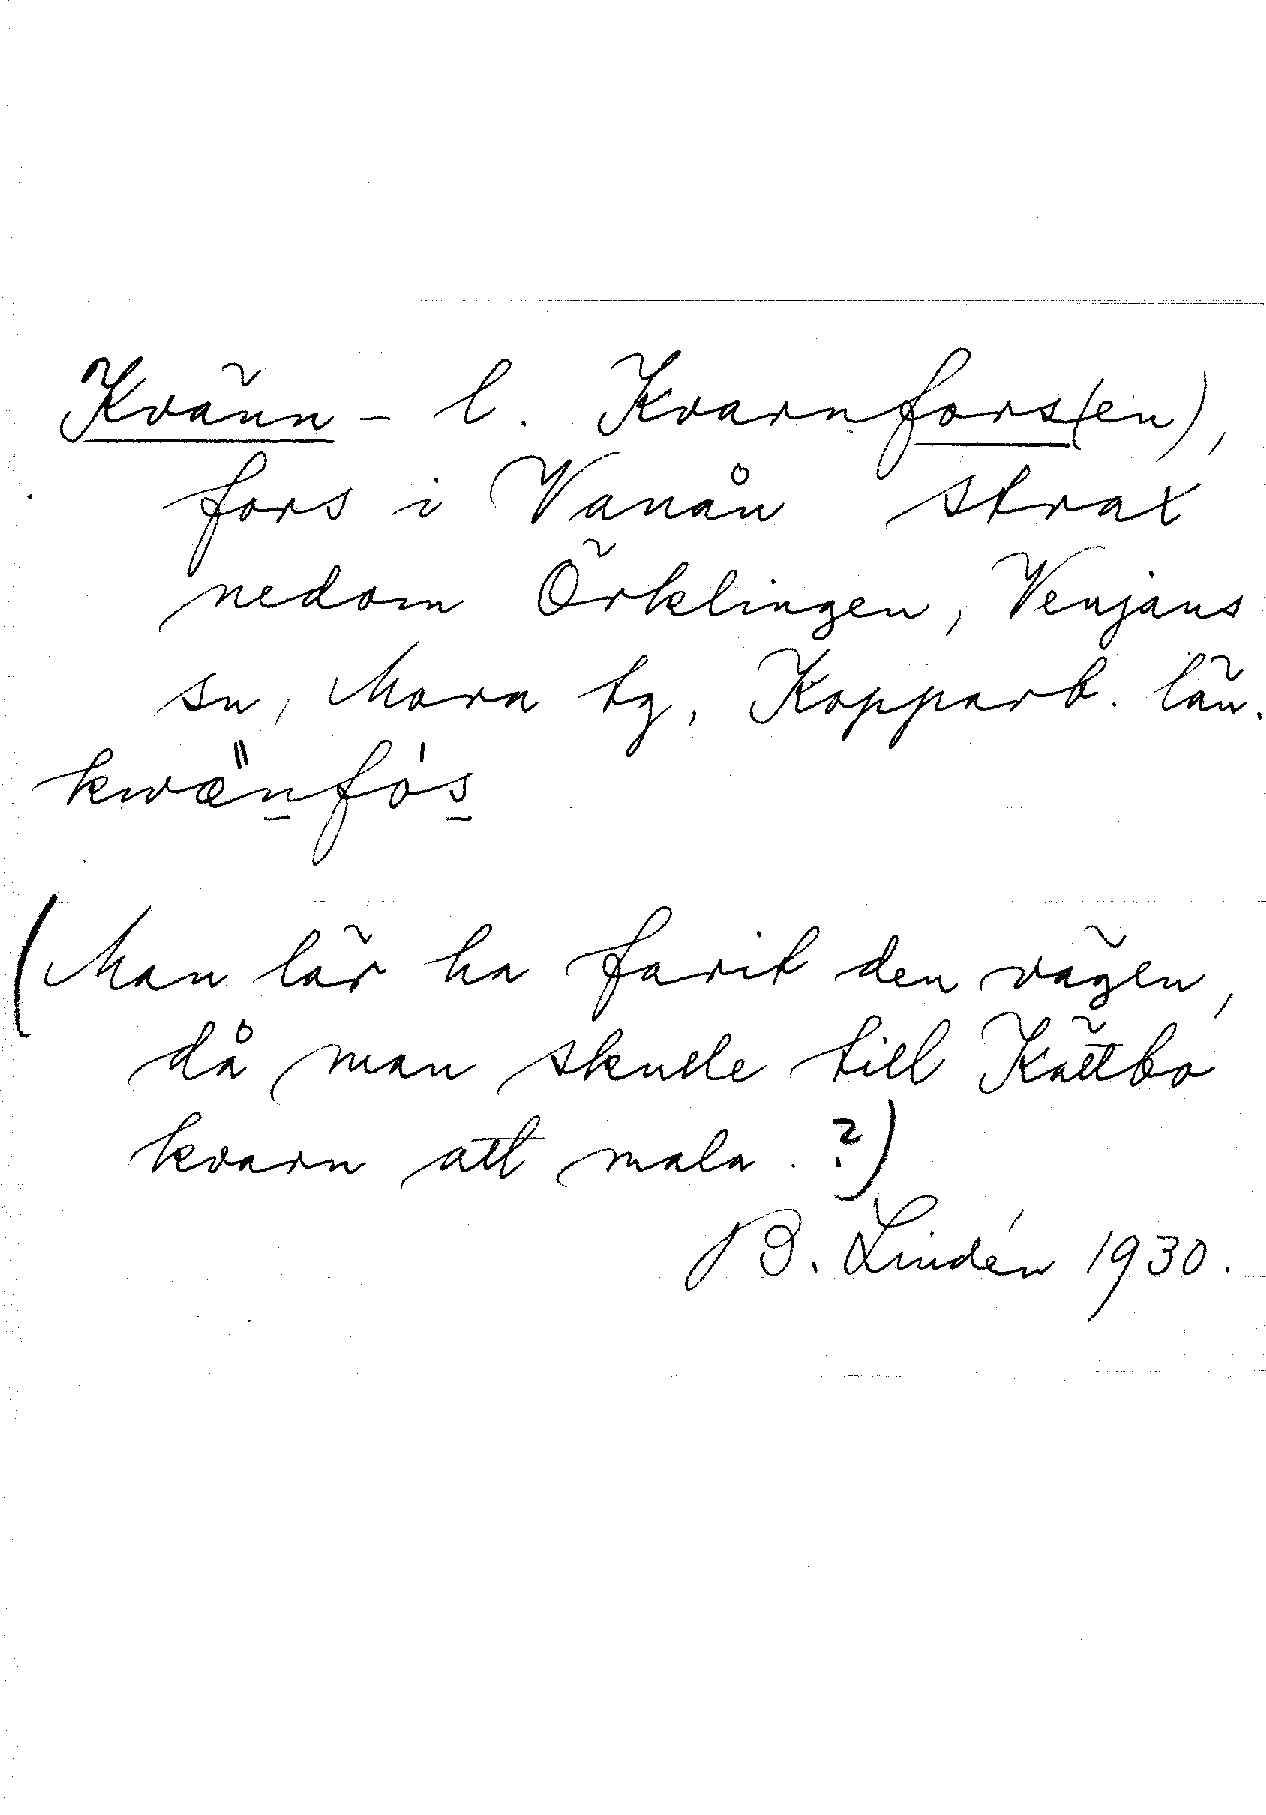 Kvänn- l. Kvarnfors(en),
fors i Vanån strax
nedom Örklingen, Venjans
sn, Mora tg, Kopparb. län.
kwæ̋nfòs
(Man lär ha farit den vägen,
då man skulle till Kättbo
kvarn att mala. ?)
B. Lindén 1930.